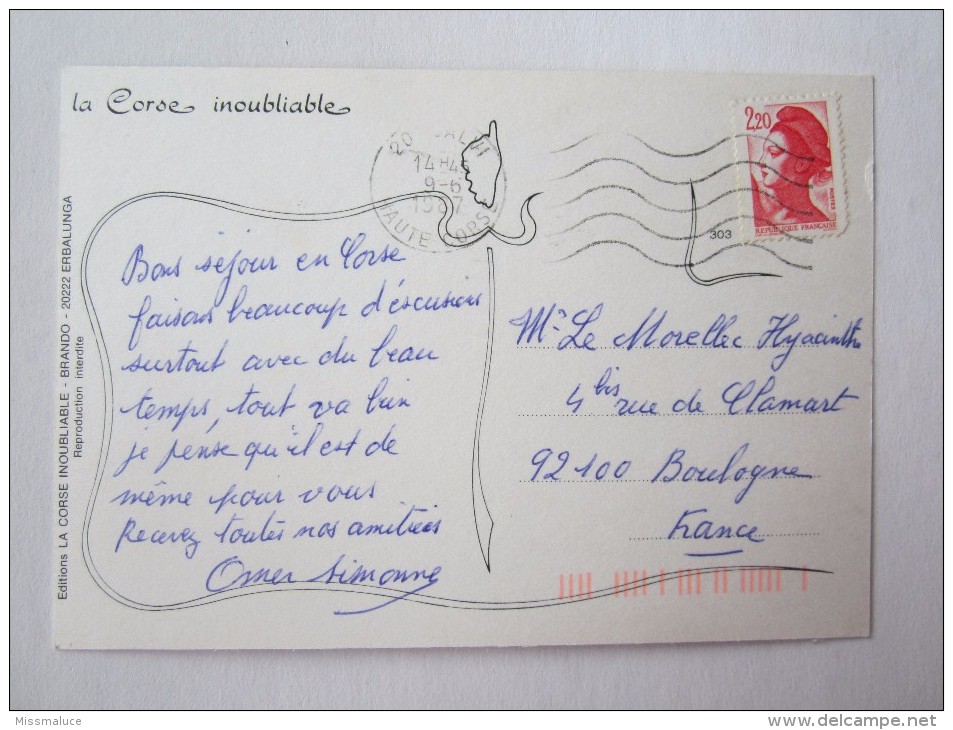 la Corse inoubliable
20 CALVI
14H45
9-6
1987
HAUTE CORSE
2,20
POSTES
REPUBLIQUE FRANÇAISE
303
Editions LA CORSE INOUBLIABLE - BRANDO - 20222 ERBALUNGA
Reproduction interdite
Bons séjour en Corse
faisons beaucoup d'escusions
surtout avec du beau
temps, tout va bien
je pense qu'il est de
même pour vous
Recevez toutes nos amitiées
Omer Simonne
Mr Le Morellec Hyacinthe
4 bis rue de Clamart
92100 Boulogne
France
Missmaluce
delcampe.net